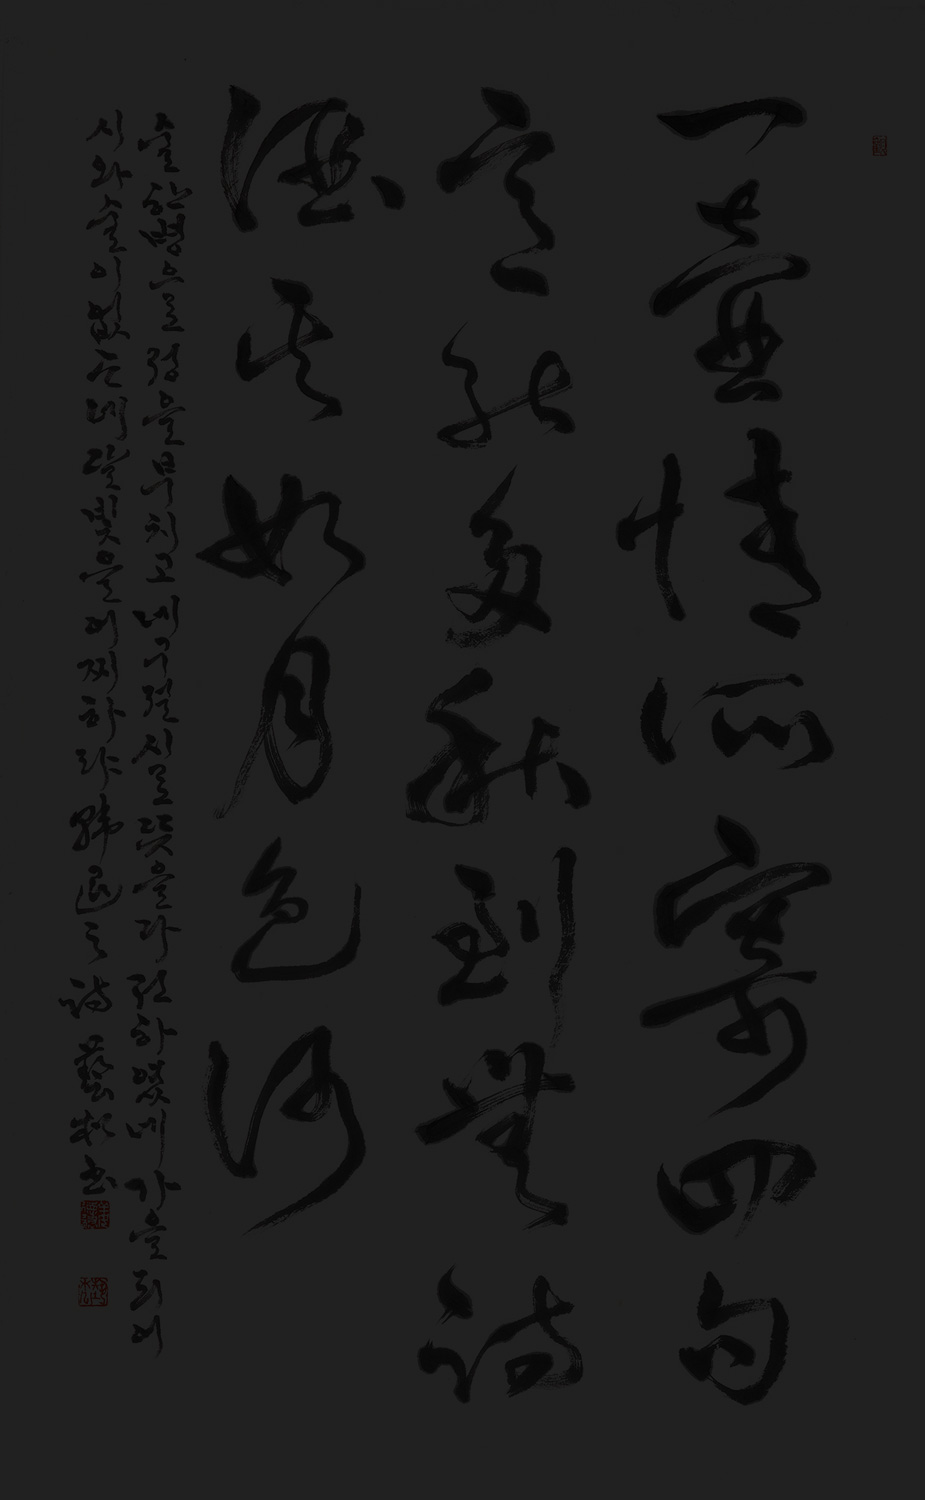 一壺情所寄四句
意能多秋到無詩
酒其如月色何
술 한병으로 정을 부치고 네 구절 시로 뜻을 다 전하였네 가을 되어
시와 술이 없는데 달빛을 어찌하랴 韓退之詩 藝松書